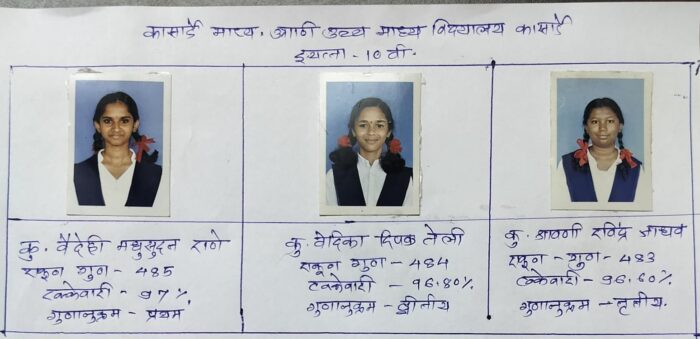 कासार्डे माध्य. आणि उच्च माध्य विद्यालय कासार्डे
इयत्ता - 10 वी.
कु. वैदेही मधुसुदन राणे
एकूण गुण - 485
टक्केवारी - 97%
गुणानुक्रम - प्रथम
कु. वेदिका दिपक तेली
एकूण गुण - 484
टक्केवारी - 96.80%
गुणानुक्रम - द्वितीय
कु. श्रावणी रविंद्र जाधव
एकूण - गुण - 483
टक्केवारी - 96.60%
गुणानुक्रम - तृतीय.